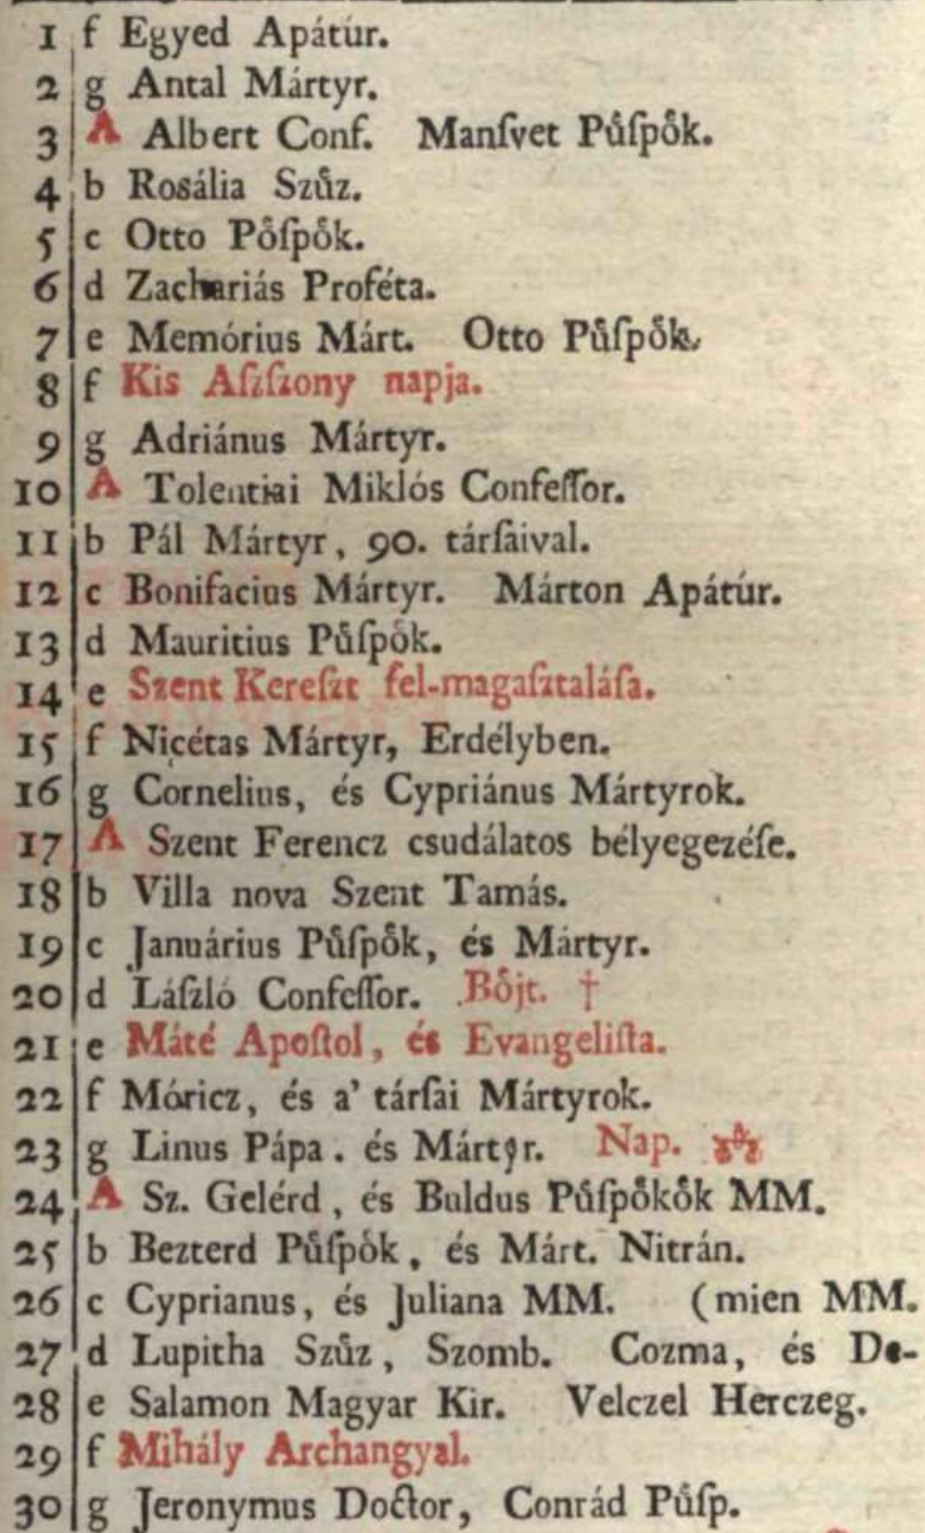 1 f Egyed Apátúr.
2 g Antal Mártyr.
3 A Albert Conf. Manſvet Pûſpök.
4 b Rosália Szůz.
5 c Otto Pöſpök.
6 d Zachariás Proféta.
7 e Memórius Márt. Otto Půſpök.
8 f Kis Aſzſzony napja.
9 g Adriánus Mártyr.
10 A Tolentiai Miklós Confeſſor.
11 b Pál Mártyr, 90. tárſaival.
12 c Bonifacius Mártyr. Márton Apátúr.
13 d Mauritius Půſpök.
14 e Szent Kereſzt fel-magaſztaláſa.
15 f Nicétas Mártyr, Erdélyben.
16 g Cornelius, és Cypriánus Mártyrok.
17 A Szent Ferencz csudálatos bélyegezéſe.
18 b Villa nova Szent Tamás.
19 c Januárius Půſpök, és Mártyr.
20 d Láſzló Confeſſor. Böjt. †
21 e Máté Apoſtol, és Evangeliſta.
22 f Móricz, és a' tárſai Mártyrok.
23 g Linus Pápa. és Mártyr. Nap.
24 A Sz. Gelérd, és Buldus Půſpökök MM.
25 b Bezterd Půſpök, és Márt. Nitrán.
26 c Cyprianus, és Juliana MM. (mien MM.
27 d Lupitha Szůz, Szomb. Cozma, és De-
28 e Salamon Magyar Kir. Velczel Herczeg.
29 f Mihály Archangyal.
30 g Jeronymus Doctor, Conrád Půſp.